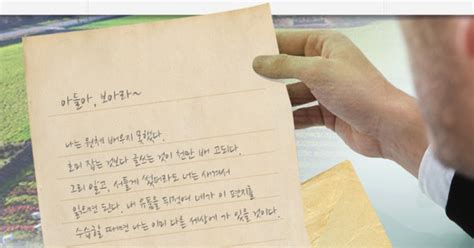 아들아, 보아라~
나는 원체 배우지 못했다.
호리 잡는 것보다 글쓰는 것이 천만 배 고되다.
그리 알고, 서툴게 썼더라도 너는 새겨서
읽으면 된다. 내 유품을 뒤적여 네가 이 편지를
수습할 때면 나는 이미 다른 세상에 가 있을 것이다.